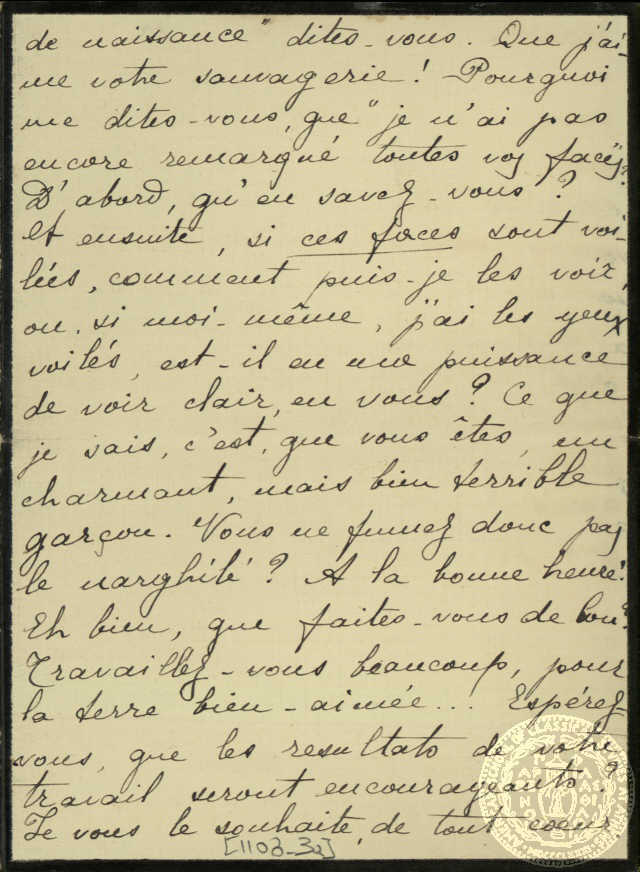 de naissance" dites-vous. Que j'ai-
me votre sauvagerie! Pourquoi
me dites-vous, que "je n'ai pas
encore remarqué toutes vos faces"?
D'abord, qu'en savez-vous?
Et ensuite, si ces faces sont voi-
lées, comment puis-je les voir,
ou, si moi-même, j'ai les yeux
voilés, est-il en ma puissance
de voir clair, en vous? Ce que
je sais, c'est, que vous êtes, un
charmant, mais bien terrible
garçon. Vous ne fumez donc pas
le narghilé? A la bonne heure!
Eh bien, que faites-vous de bon?
Travaillez-vous beaucoup, pour
la terre bien-aimée... Espérez-
vous, que les resultats de votre
travail seront encourageants?
Je vous le souhaite, de tout coeur
[1103_32]